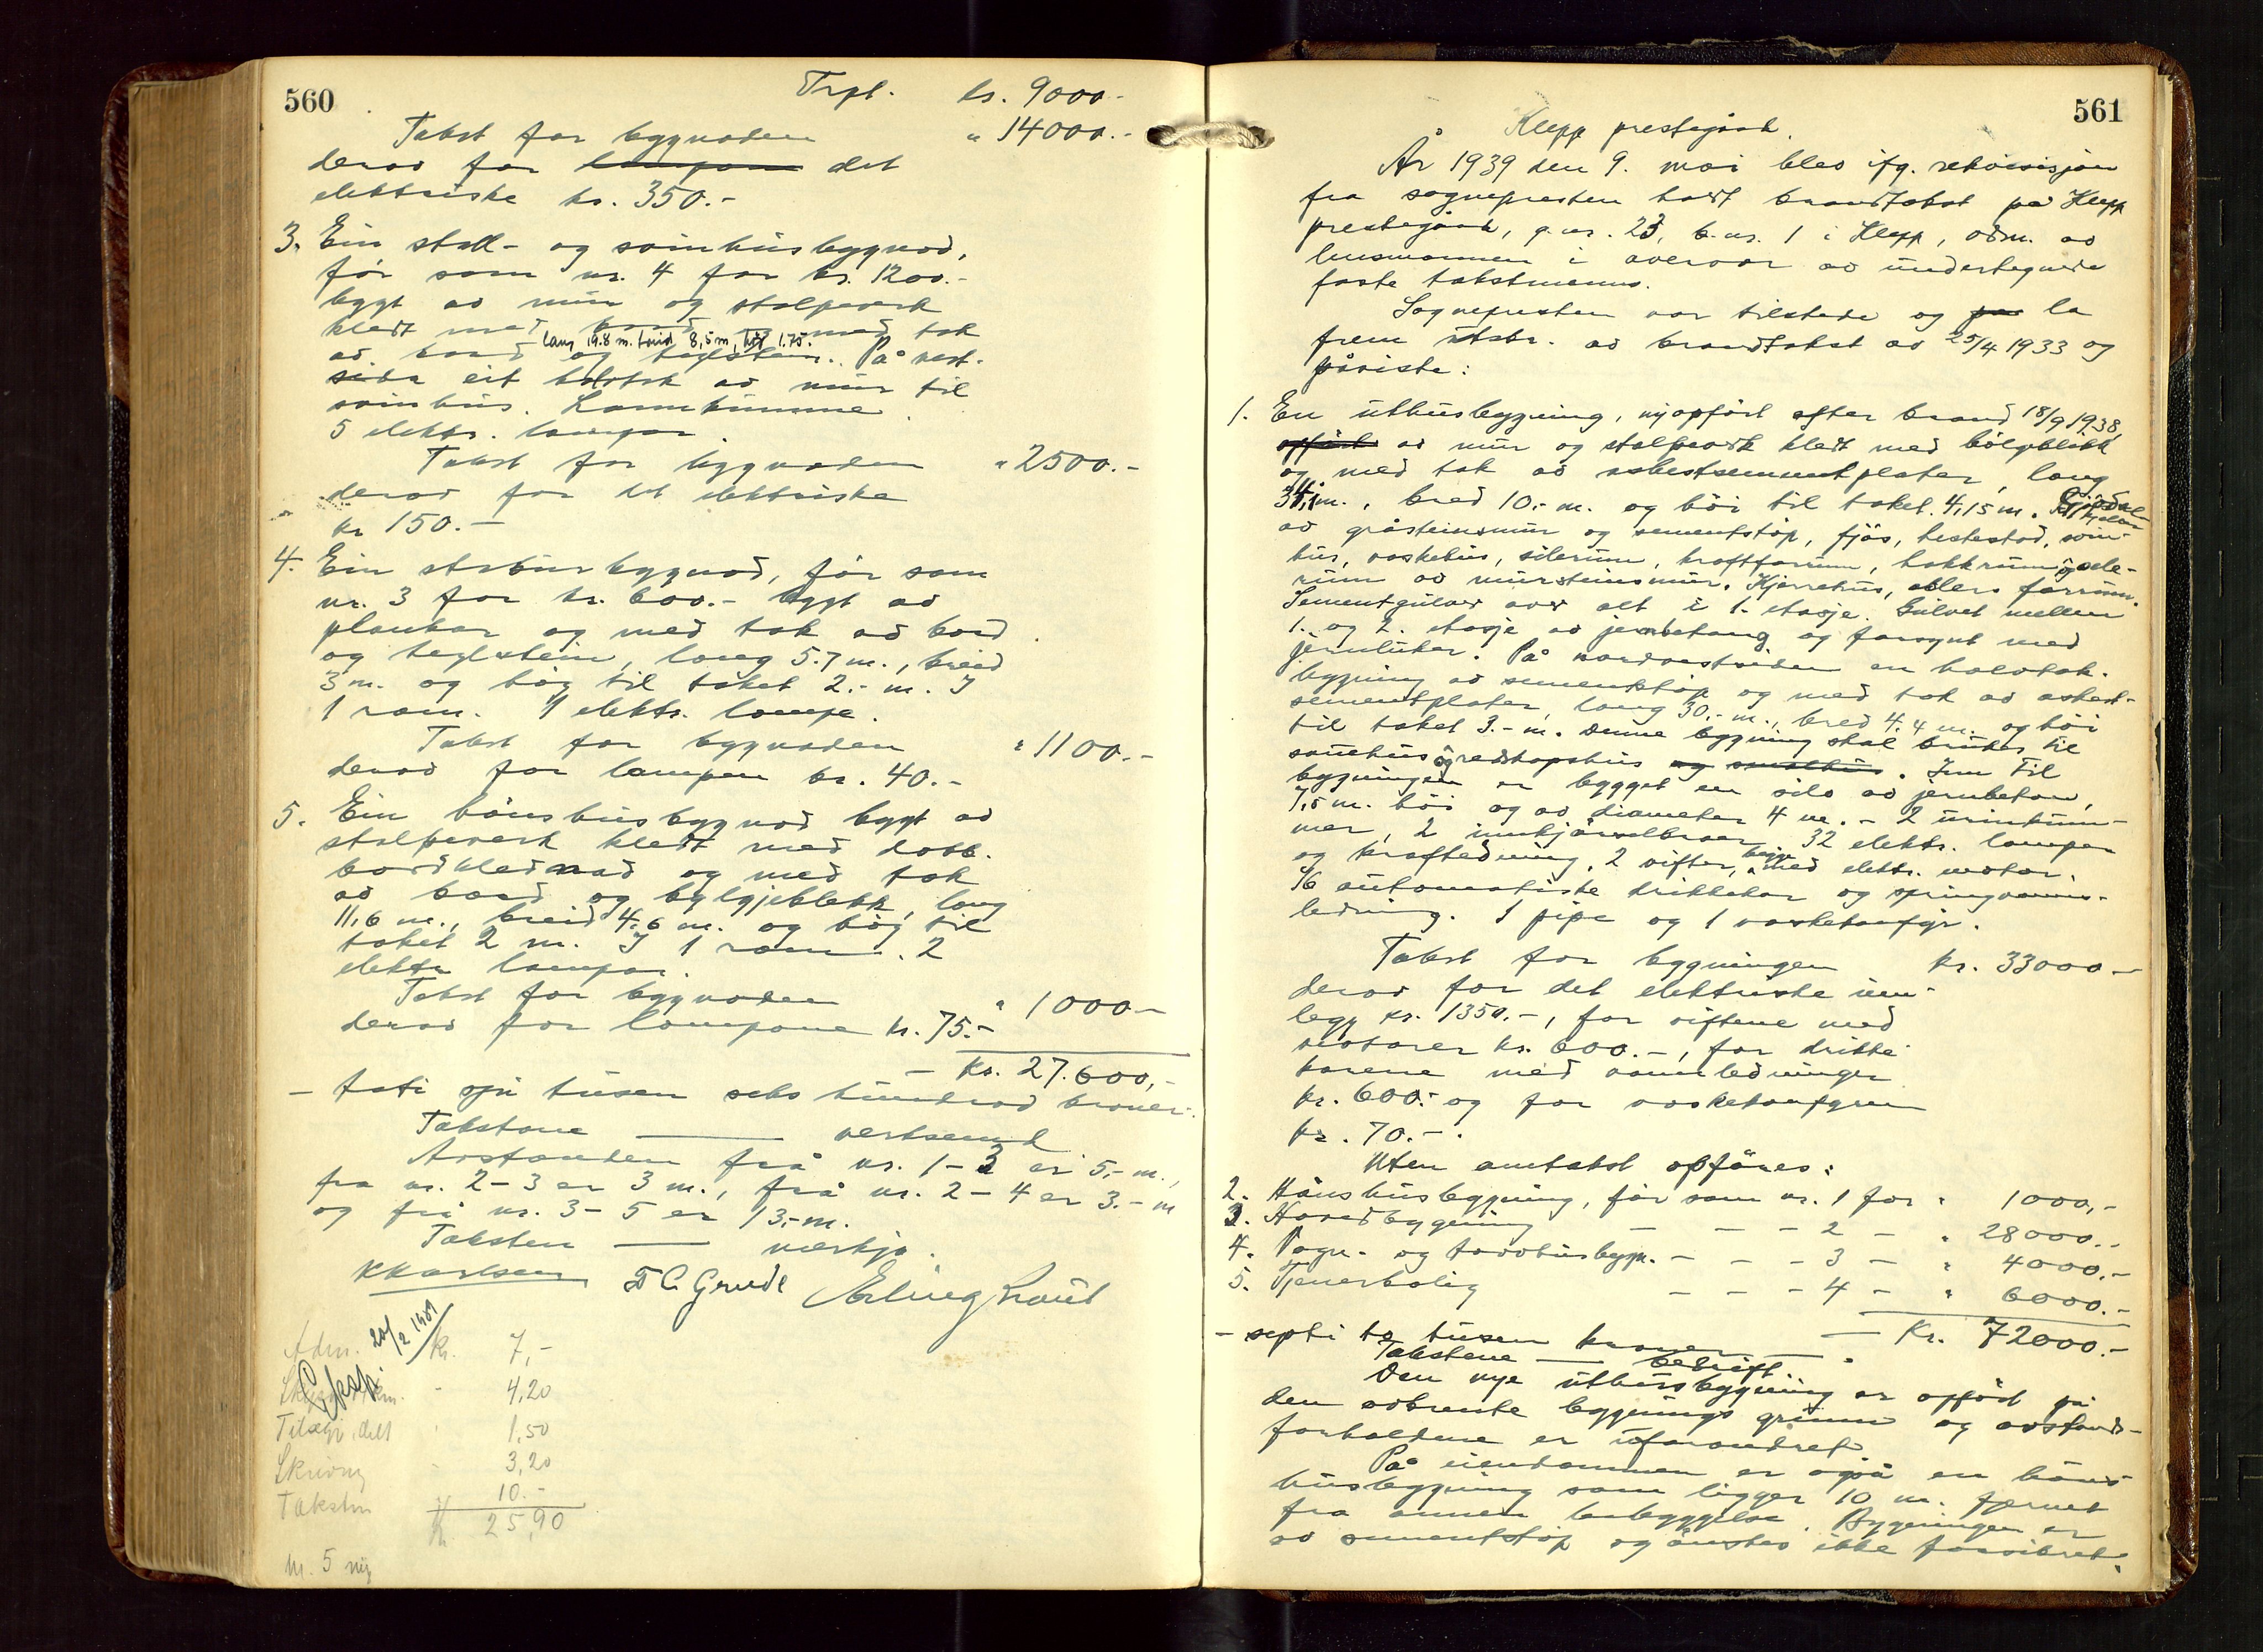 560
Trpt. kr. 9000.-
Takst for bygnaden " 14000.-
derav for lampone det
elektriske kr. 350.-
3. Ein stall- og svinhusbygnad,
för som nr. 4 for kr. 1200.-
bygt av mur og stolpeverk
kledt med bord og med tak
lang 19.8 m. breid 8,5 m, høg 1.75.
av bord og teglstein. På vest-
sida eit halvtak av mur til
svinhus. Landkumme.
5 elektr. lampor.
Takst for bygnaden " 2500.-
derav for det elektriske
kr 150.-
4. Ein stabursbygnad, för som
nr. 3 for kr. 600.- bygt av
plankar og med tak av bord
og teglstein, lang 5.7 m., breid
3 m. og høg til taket 2.- m. I
1 rom. 1 elektr. lampe.
Takst for bygnaden " 1100.-
derav for lampen kr. 40.-
5. Ein hönshusbygnad bygt av
stolpeverk kledt med dobb.
bordklednad og med tak
av bord og bylgjeblekk, lang
11,6 m., breid 4,6 m. og høg til
taket 2 m. I 1 rom. 2
elektr lampor.
Takst for bygnaden " 1000.-
derav for lampone kr. 75.-
- Kr. 27.600,-
- tuti sju tusen seks hundrad kroner.
Takstane —— verksemd
Avstanden frå nr. 1-2 er 5,- m.,
fra nr. 2-3 er 3 m., frå nr. 2-4 er 3.- m
og frå nr. 3-5 er 13,- m.
Taksten —— merkja.
K Karlsen T C Grude Erling Braut
Adm. kr. 7,-
20/2 1401
Ekspt
4,20
Tillegg delt " 1,50
Skrivng - 3,20
Takstm 10.-
Kr. 25,90
nr. 5 ny
561
Klepp prestegård.
År 1939 den 9. mai blev ifg. rekvisisjon
fra sognepresten holdt brandtakst på Klepp
prestegård, g.nr. 23, b.nr. 1 i Klepp, adm. av
lensmannen i overvær av undertegnede
faste takstmenn.
Sognepresten var tilstede og la
frem utskr. av brandtakst av 25/4 1933 og
påviste:
1. En uthusbygning, nyopført efter brand 18/9 1938,
opført av mur og stolpeverk kledt med bölgeblikk
og med tak av asbestsementplater, lang
34,1 m., bred 10.- m. og höi til taket 4,15 m. Gjödselkjelder
av gråsteinsmur og sementstöp, fjös, hestestad, svin-
hus, vaskehus, silerum, kraftforrum, hakkrum og sele-
rum av mursteinsmur. Kjerrehus, ellers forrum.
Sementgulver over alt i 1. etasje. Gulvet mellem
1. og 2. etasje av jernbetong og forsynt med
jernluker. På nordvestsiden en halvtak-
bygning av sementstöp og med tak av asbest-
sementplater, lang 30.- m., bred 4.4 m. og höi
til taket 3.- m. Denne bygning skal brukes til
sauehus og redskapshus og smalhus. Inn til
bygningen er bygget en silo av jernbetong,
7,5 m. höi og av diameter 4 m. - 2 urinkum-
mer, 2 innkjörselbroer, 32 elektr. lamper
og kraftledning, 2 vifter, begge med elektr. motor.
16 automatiske drikkekar og springvanns-
ledning. 1 pipe og 1 vaskekomfyr.
Takst for bygningen kr. 33000.-
derav for det elektriske inn-
legg kr. 1350.-, for viftene med
motorer kr. 600.-, for drikke-
karene med vannledninger
kr. 600.- og for vaskekomfyren
kr. 70.-.
Uten omtakst opföres:
2. Hönshusbygning, för som nr. 1 for " 1000,-
3. Hovedbygning - - - 2 - " 28000.-
4. Vogn- og torvhusbygn. - - - 3 - " 4000.-
5. Tjenerbolig - - - 4 - " 6000.-
- sytti to tusen kroner — Kr. 72000.-
Takstene —— bedrift.
Den nye uthusbygning er opfört på
den avbrente bygnings grunn og avstands-
forholdene er uforandret.
På eiendommen er også en höns-
husbygning som ligger 10 m. fjernet
fra annen bebyggelse. Bygningen er
av sementstöp og önskes ikke forsikret.